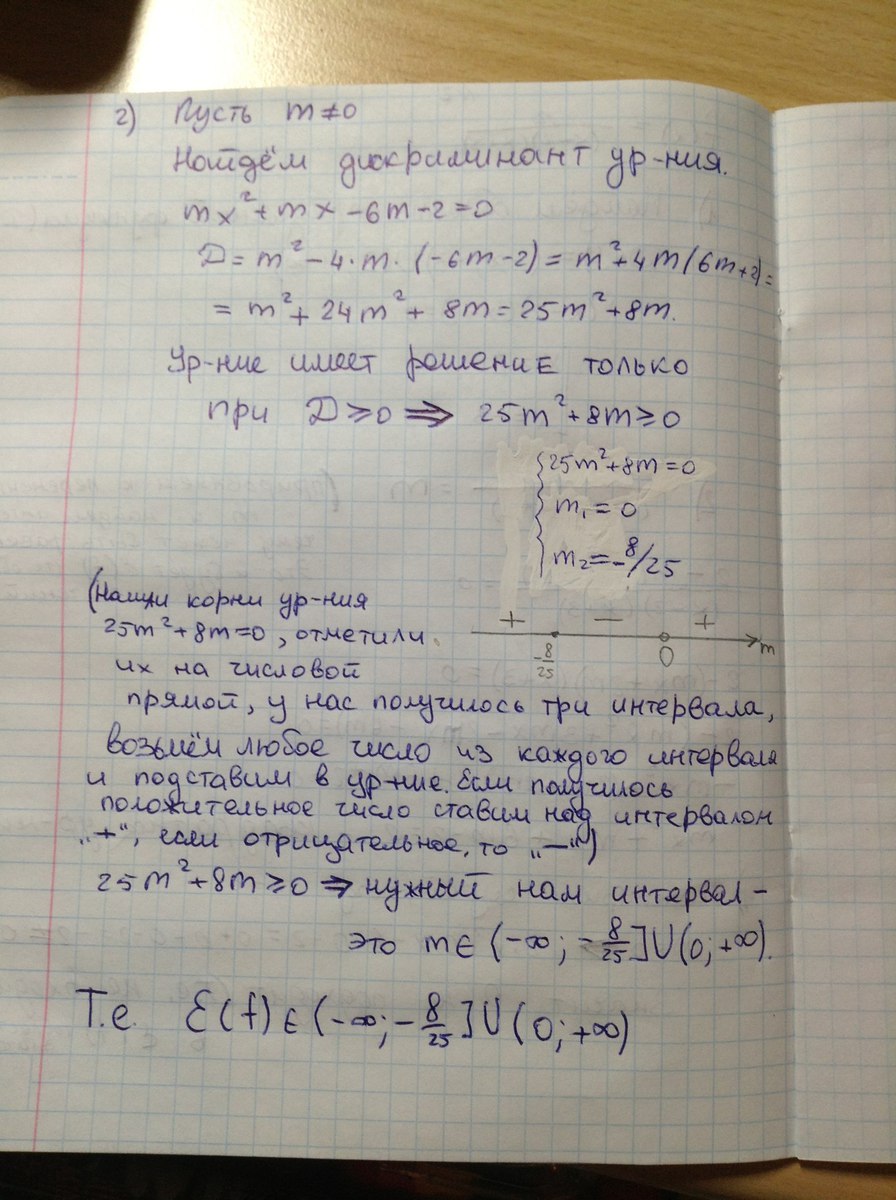 2) Пусть m≠0
Найдём дискриминант ур-ния.
mx²+mx-6m-2=0
D=m²-4·m·(-6m-2)=m²+4m(6m+2)=
=m²+24m²+8m=25m²+8m.
Ур-ние имеет решение только
при D≥0 ⇒ 25m²+8m≥0
{25m²+8m=0
m₁=0
m₂=-8/25
(Нашли корни ур-ния
25m²+8m=0, отметили
их на числовой
+ - +
-8/25 0 m
прямой, у нас получилось три интервала,
возьмём любое число из каждого интервала
и подставим в ур-ние. Если получилось
положительное число ставим над интервалом
„+“, если отрицательное, то „—“)
25m²+8m≥0 ⇒ нужный нам интервал -
это m∈(-∞;-8/25]U(0;+∞).
Т.е. E(f)∈(-∞;-8/25]U(0;+∞)